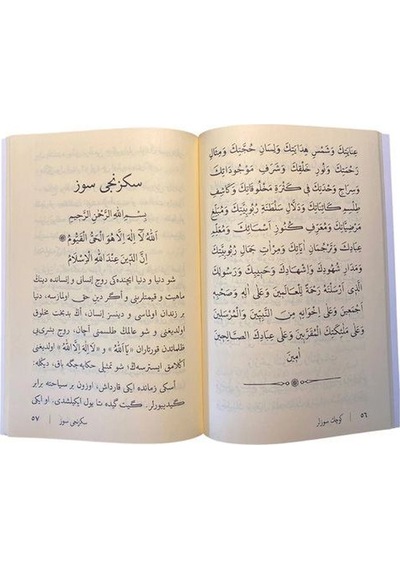 عِنَايَتِكَ وَشَمْسِ هِدَايَتِكَ وَلِسَانِ حُجَّتِكَ وَمِثَالِ
رَحْمَتِكَ وَنُورِ خَلْقِكَ وَشَرَفِ مَوْجُودَاتِكَ
وَسِرَاجِ وَحْدَتِكَ فِى كَثْرَةِ مَخْلُوقَاتِكَ وَكَاشِفِ
طِلْسِمِ كَائِنَاتِكَ وَدَلَّالِ سَلْطَنَةِ رُبُوبِيَّتِكَ وَمُبَلِّغِ
مَرْضِيَّاتِكَ وَمُعَرِّفِ كُنُوزِ اَسْمَائِكَ وَمُعَلِّمِ
عِبَادِكَ وَتَرْجُمَانِ اٰيَاتِكَ وَمِرْاٰتِ جَمَالِ رُبُوبِيَّتِكَ
وَمَدَارِ شُهُودِكَ وَاِشْهَادِكَ وَحَبِيبِكَ وَرَسُولِكَ
الَّذِى اَرْسَلْتَهُ رَحْمَةً لِلْعَالَمِينَ وَعَلَى اٰلِهِ وَصَحْبِهِ
اَجْمَعِينَ وَعَلَى اِخْوَانِهِ مِنَ النَّبِيِّينَ وَالْمُرْسَلِينَ
وَعَلَى مَلٰئِكَتِكَ الْمُقَرَّبِينَ وَعَلَى عِبَادِكَ الصَّالِحِينَ
اٰمِينَ
٥٦ | كوچك سوزلر
سكزنجى سوز
بِسْمِ اللّٰهِ الرَّحْمٰنِ الرَّحِيمِ
اَللّٰهُ لَا اِلٰهَ اِلَّا هُوَ الْحَىُّ الْقَيُّومُ ۞
اِنَّ الدِّينَ عِنْدَ اللّٰهِ الْاِسْلَامُ
شو دنيا و دنيا ايچنده‌كى روح انسانى و انسانده دينك
ماهيت و قيمتلرينى و اگر دين حق اولمازسه، دنيا
بر زندان اولماسى و دينسز انسان، اڭ بدبخت مخلوق
اولديغنى و شو عالمك طلسمنى آچان، روح بشرى‌يى
ظلماتدن قورتاران « يَا اَللّٰهُ » و « لَا اِلٰهَ اِلَّا اللّٰهُ » اولديغنى
آڭلامق ايسترسه‌ڭ؛ شو تمثيلى حكايه‌جگه باق، ديڭله:
اسكى زمانده ايكى قارداش، اوزون بر سياحته برابر
گيديورلر. گيت گيده تا يول ايكيلشدى. او ايكى
سكزنجى سوز | ٥٧